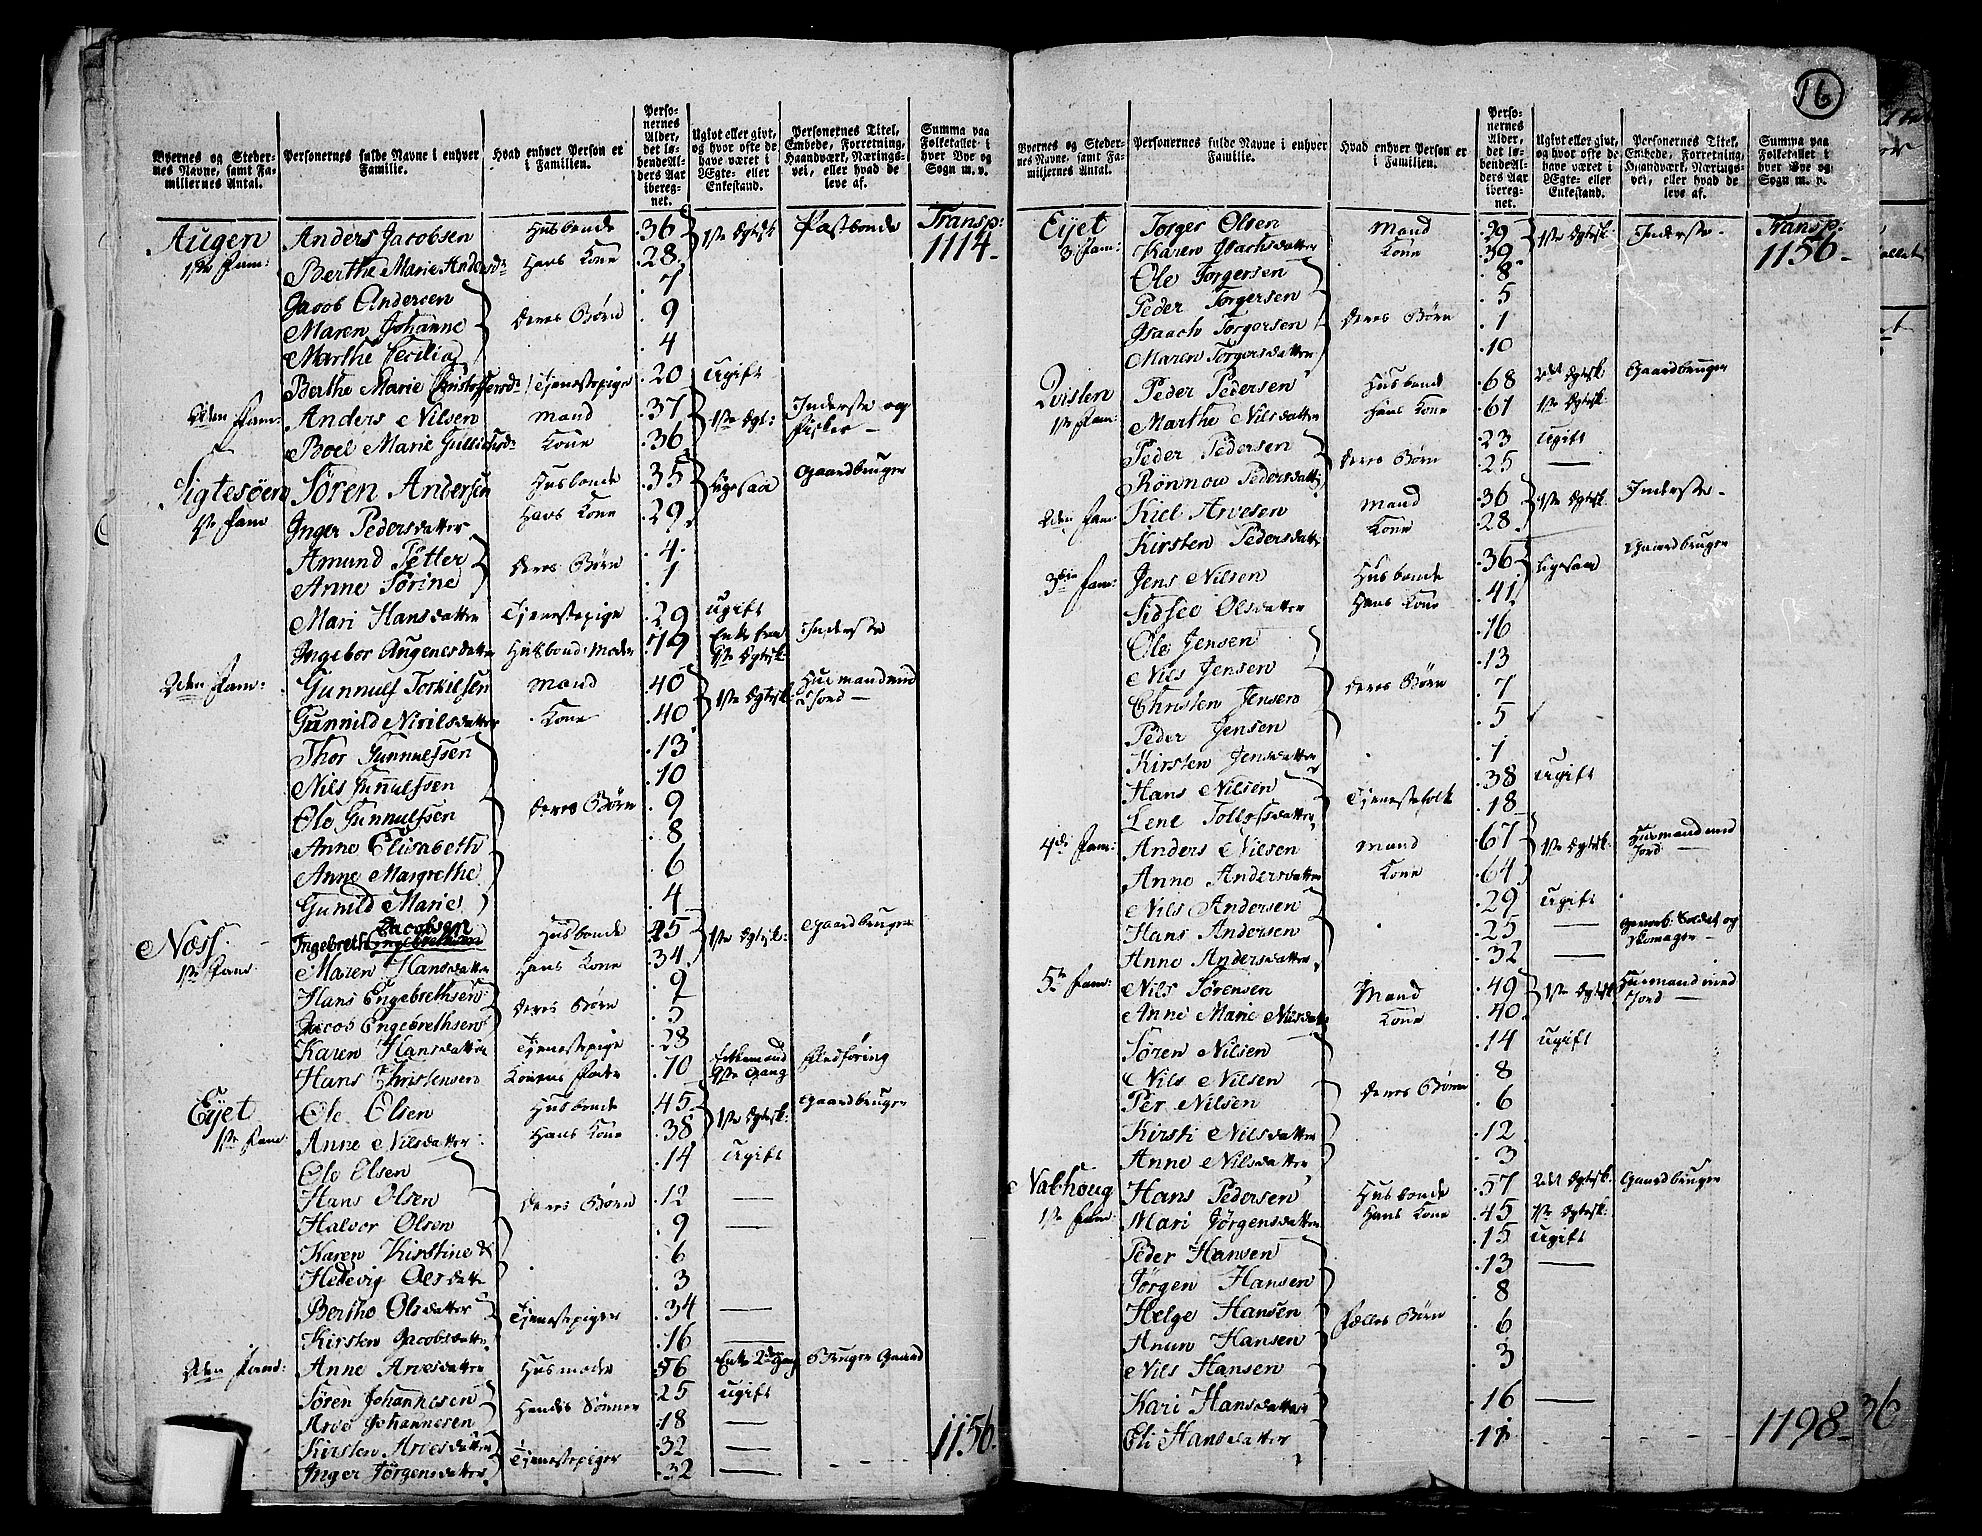 16
Byernes og Steder-
nes Navne, samt Fa-
miliernes Antal.
Personernes fulde Navne i enhver
Familie.
Hvad enhver Person er
i Familien.
Perso-
nernes
Alder,
det lø-
bende Al-
ders Aar
ibereg-
net.
Ugivt eller givt,
og hvor ofte de
have været i
Ægte- eller
Enkestand.
Personernes Titel,
Embede, Forretning,
Haandværk, Nærings-
vei, eller hvad de
leve af.
Summa paa
Folketallet i
hver Bye og
Sogn m. v.
Augen Anders Jacobsen Husbonde 36 1ste Egtesk Postbonde Transp:
1ste Fam: Berthe Marie Andersdr Hans Kone 28 1114
Jacob Andersen 7
Maren Johanne Deres Børn 9
Marthe Cecilia 4
Berthe Marie Christofersdr Tjenestepige 20 ugift
2den Fam: Anders Nilsen Mand 37 1ste Egt: Inderste og
Boel Marie Gullicksdr Kone 36 Fisker
Sigtesøen Sören Andersen Husbonde 35 ligesaa Gaardbruger
1ste Fam Inger Pedersdatter Hans Kone 29
Amund Petter Deres Børn 4
Anne Sörine 1
Mari Hansdatter Tjenestepige 29 ugift
Ingebor Augenesdatter Husbonds Moder 79 Enke ... Inderste
1ste Egtesk
2den Fam: Gunnulf Torkilsen Mand 40 1ste Egtesk: Husmand med
Gunnild Nirilsdatter Kone 40 Jord
Thor Gunnulfsen 13
Nils Gunnulfsen 10
Ole Gunnulfsen Deres Børn 9
Anne Elisabeth 8
Anne Margrethe 6
Gunild Marie 4
Næss Ingebreth Jacobsen Husbonde 45 1ste Egtesk: Gaardbruger
1ste Fam: Maren Hansdatter Hans Kone 34
Hans Engebrethsen Deres Børn 9
Jacob Engebrethsen 5
Karen Hansdatter Tjenestepige 28
Hans Christensen Konens Fader 70 Enkemand Fledføring
1ste Gang
Eijet Ole Olsen Husbonde 45 1ste Egtesk: Gaardbruger
1ste Fam: Anne Nilsdatter Hans Kone 38
Ole Olsen 14 ugift
Hans Olsen Deres Børn 12 —
Halvor Olsen 9 —
Karen Kirstine 6
Hedevig Olsdatter 3
Berthe Olsdatter Tjenestepiger 34 —
Kirsten Jacobsdatter 16 —
2den Fam: Anne Arvesdatter Husmoder 56 Enke 2den Gang Bruger Gaard
Sören Johannesen Hendes Sönner 25 ugift
Arve Johannesen 18 —
Kirsten Arvesdatter Tjenestepiger 32 —
Inger Jörgensdatter 32 — 1156
Byernes og Steder-
nes Navne, samt Fa-
miliernes Antal.
Personernes fulde Navne i enhver
Familie.
Hvad enhver Person er
i Familien.
Perso-
nernes
Alder,
det lø-
bende Al-
ders Aar
ibereg-
net.
Ugivt eller givt,
og hvor ofte de
have været i
Ægte- eller
Enkestand.
Personernes Titel,
Embede, Forretning,
Haandværk, Nærings-
vei, eller hvad de
leve af.
Summa paa
Folketallet i
hver Bye og
Sogn m. v.
Eijet Torger Olsen Mand 29 1ste Egtesk: Inderste Transp:
3 Fam: Karen Isachsdatter Kone 39 1156
Ole Torgersen 8
Peder Torgersen 5
Isaach Torgersen Deres Børn 1
Maren Torgersdatter 10
Qvisten Peder Pedersen Husbonde 68 2det Egtesk: Gaardbruger
1ste Fam: Marthe Nilsdatter Hans Kone 61 1ste Egtesk:
Peder Pedersen Deres Børn 23 ugift
Rönnou Pedersdatter 25 —
2den Fam: Kiel Arvesen Mand 36 1ste Egtesk: Inderste
Kirsten Pedersdatter Kone 28
3die Fam: Jens Nilsen Husbonde 36 ligesaa Gaardbruger
Sidsee Olsdatter Hans Kone 41
Ole Jensen 16
Nils Jensen 13
Christen Jensen Deres Børn 7
Peder Jensen 5
Kirsten Jensdatter 1
Hans Nilsen Tjenestefolk 38 ugift
Lene Tollefsdatter 18
4de Fam: Anders Nilsen Mand 67 1ste Egtesk: Husmand med
Anne Andersdatter Kone 64 Jord
Nils Andersen 29 ugift
Hans Andersen 25 — Gevorb. Soldat og
Anne Andersdatter 32 — Skomager
5te Fam: Nils Sörensen Mand 49 1ste Egtesk: Husmand med
Anne Marie Nilsdatter Kone 40 Jord
Sören Nilsen 14 ugift
Nils Nilsen 8
Per Nilsen Deres Børn 6
Kirsti Nilsdatter 12
Anne Nilsdatter 3
Valhoug Hans Pedersen Husbonde 57 2det Egtesk: Gaardbruger
1ste Fam: Mari Jörgensdatter Hans Kone 45 1ste Egtesk:
Peder Hansen 15 ugift
Jörgen Hansen 13 —
Helge Hansen Fælles Børn 8
Anun Hansen 6
Nils Hansen 3
Kari Hansdatter 16 —
Eli Hansdatter 11 1198
36